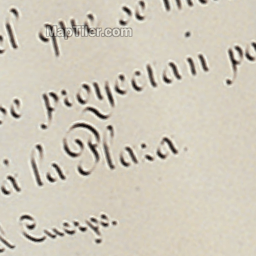 el que se
Mapfiller.com
se proyectan pa
á la Plaza.
l Cuerpo.